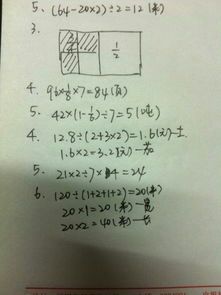 5、(64-20×2)÷2=12(米)
3.
1/2
4. 96×1/8×7=84(页)
5. 42×(1-1/6)÷7=5(吨)
4. 12.8÷(2+3×2)=1.6(元)—土
1.6×2=3.2(元)—茄
5. 21×2÷7×4=24
6. 120÷(1+2+1+2)=20(米)
20×1=20(米)—宽
20×2=40(米)—长